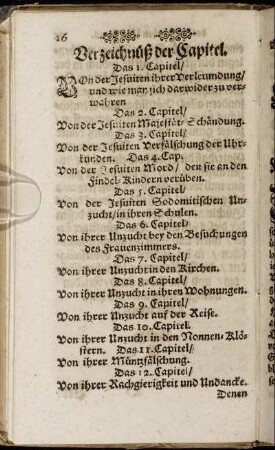 16
Verzeichnüß der Capitel.
Das 1. Capitel/
VOn der Jesuiten ihrer Verleumdung/
und wie man sich darwider zu ver-
wahren
Das 2. Capitel/
Von der Jesuiten Majestät-Schändung.
Das 3. Capitel/
Von der Jesuiten Verfälschung der Uhr-
kunden. Das 4. Cap.
Von der Jesuiten Mord/ den sie an den
Findel-Kindern verüben.
Das 5. Capitel/
Von der Jesuiten Sodomitischen Un-
zucht/ in ihren Schulen.
Das 6. Capitel/
Von ihrer Unzucht bey den Besuchungen
des Frauenzimmers.
Das 7. Capitel/
Von ihrer Unzucht in den Kirchen.
Das 8. Capitel/
Von ihrer Unzucht in ihren Wohnungen.
Das 9. Capitel/
Von ihrer Unzucht auf der Reise.
Das 10. Capitel.
Von ihrer Unzucht in den Nonnen-Klö-
stern. Das 11. Capitel/
Von ihrer Müntzfälschung.
Das 12. Capitel/
Von ihrer Rachgierigkeit und Undancke.
Denen